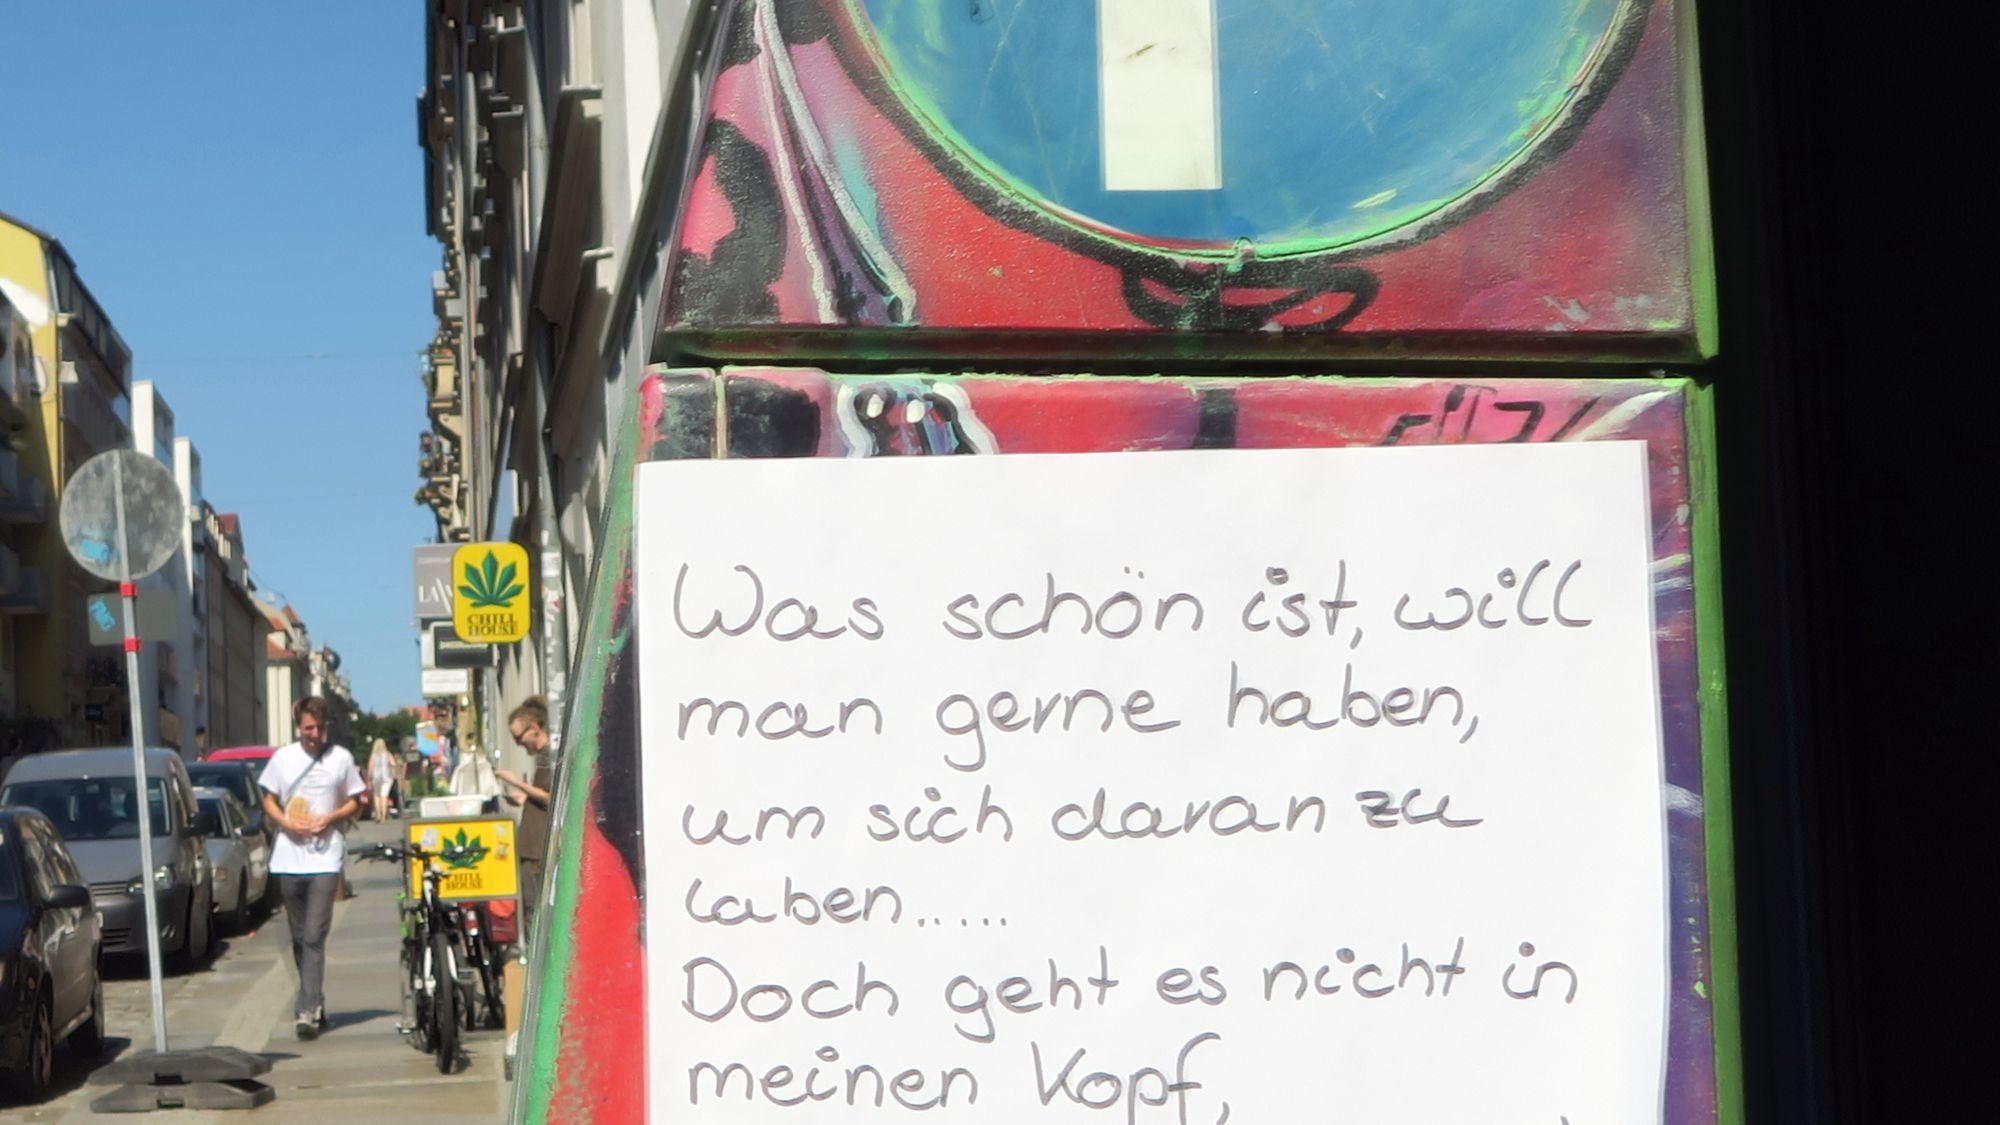 Was schön ist, will
man gerne haben,
um sich daran zu
laben.....
Doch geht es nicht in
meinen Kopf,
CHILL
HOUSE
CHILL
HOUSE